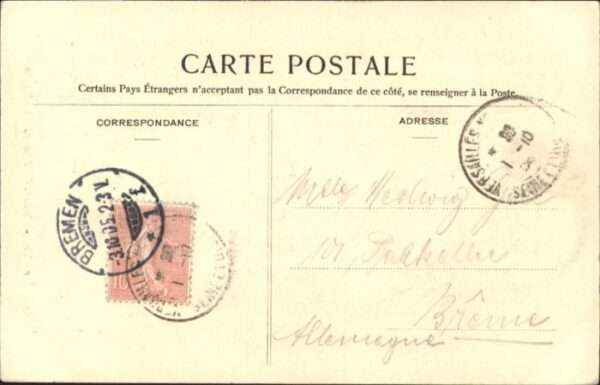 CARTE POSTALE
Certains Pays Étrangers n'acceptant pas la Correspondance de ce côté, se renseigner à la Poste.
CORRESPONDANCE
ADRESSE
VERSAILLES
1 -10
SEINE
BREMEN
1
10
Mlle Hedwig
Brême
Allemagne